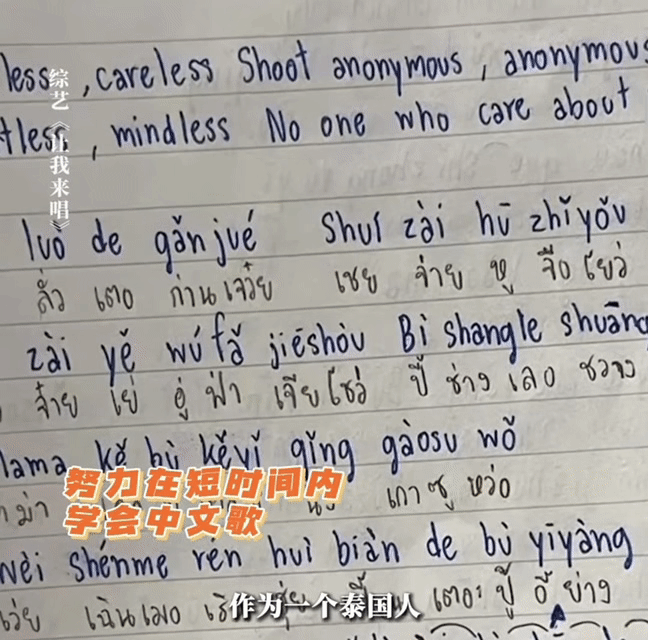 less, careless Shoot anonymous, anonymous
tless, mindless No one who care about
综艺《让我来唱》
luò de gǎnjué Shuí zài hū zhǐyǒu
ลั่ว เตอ ก่านเจวี๋ย เชย จ้าย หู จื่อ โย่ว
zài yě wúfǎ jiēshòu Bì shangle shuāng
จ้าย เย่ อู๋ ฝ่า เจียโชว่ ปี้ ซ่าง เลอ ชวง
lama kě bù kěyǐ qǐng gàosu wǒ
เกาซู หว่อ
努力在短时间内
学会中文歌
wèi shénme ren huì biàn de bù yīyàng
เว่ย เฉินเมอ เตอะ ปู้ อี ย่าง
作为一个泰国人